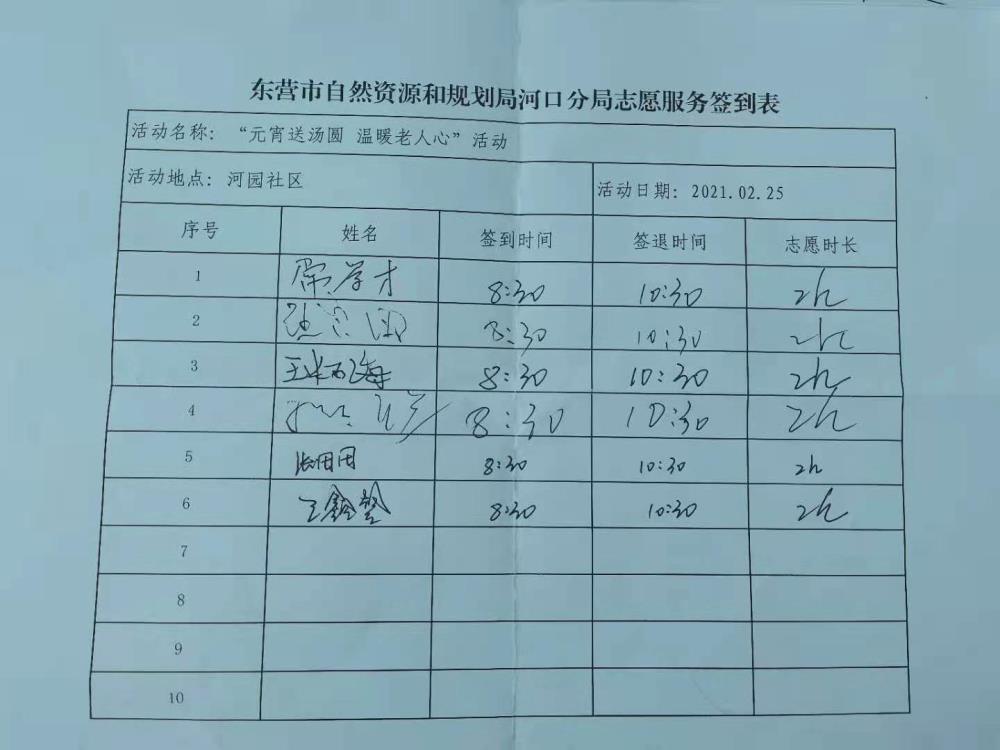 东营市自然资源和规划局河口分局志愿服务签到表
活动名称：“元宵送汤圆 温暖老人心”活动
活动地点：河园社区 活动日期：2021.02.25
序号 姓名 签到时间 签退时间 志愿时长
1 常学才 8:30 10:30 2h
2 8:30 10:30 2h
3 8:30 10:30 2h
4 8:30 10:30 2h
5 张田田 8:30 10:30 2h
6 8:30 10:30 2h
7
8
9
10